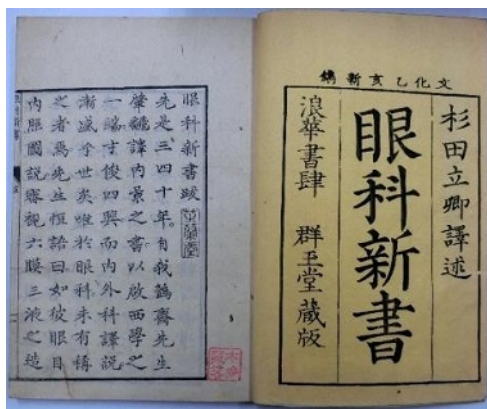 文化乙亥新鐫
杉田立卿譯述
眼科新書
浪華書肆 群玉堂蔵版
眼科新書跋
先是三四十年。自我鷧齋先生
肇飜譯内景之書以啟西學之
一端才俊四興而内外科譯説
漸盛于世矣唯於眼科未有
之者焉先生恒語曰如彼眼目
内照圖説審視六膜三液之造